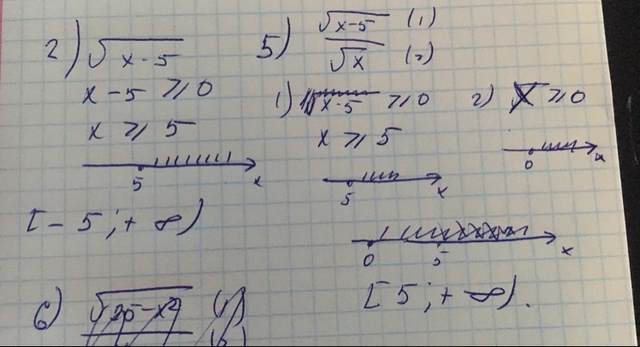 2) √(x-5)
x-5 ⩾ 0
x ⩾ 5
5 x
[-5; +∞)
5) √(x-5) (1)
√x (2)
1) x-5 ⩾ 0
x ⩾ 5
5 x
2) x ⩾ 0
0 x
0 5 x
[5; +∞).
6) √(25-x²)